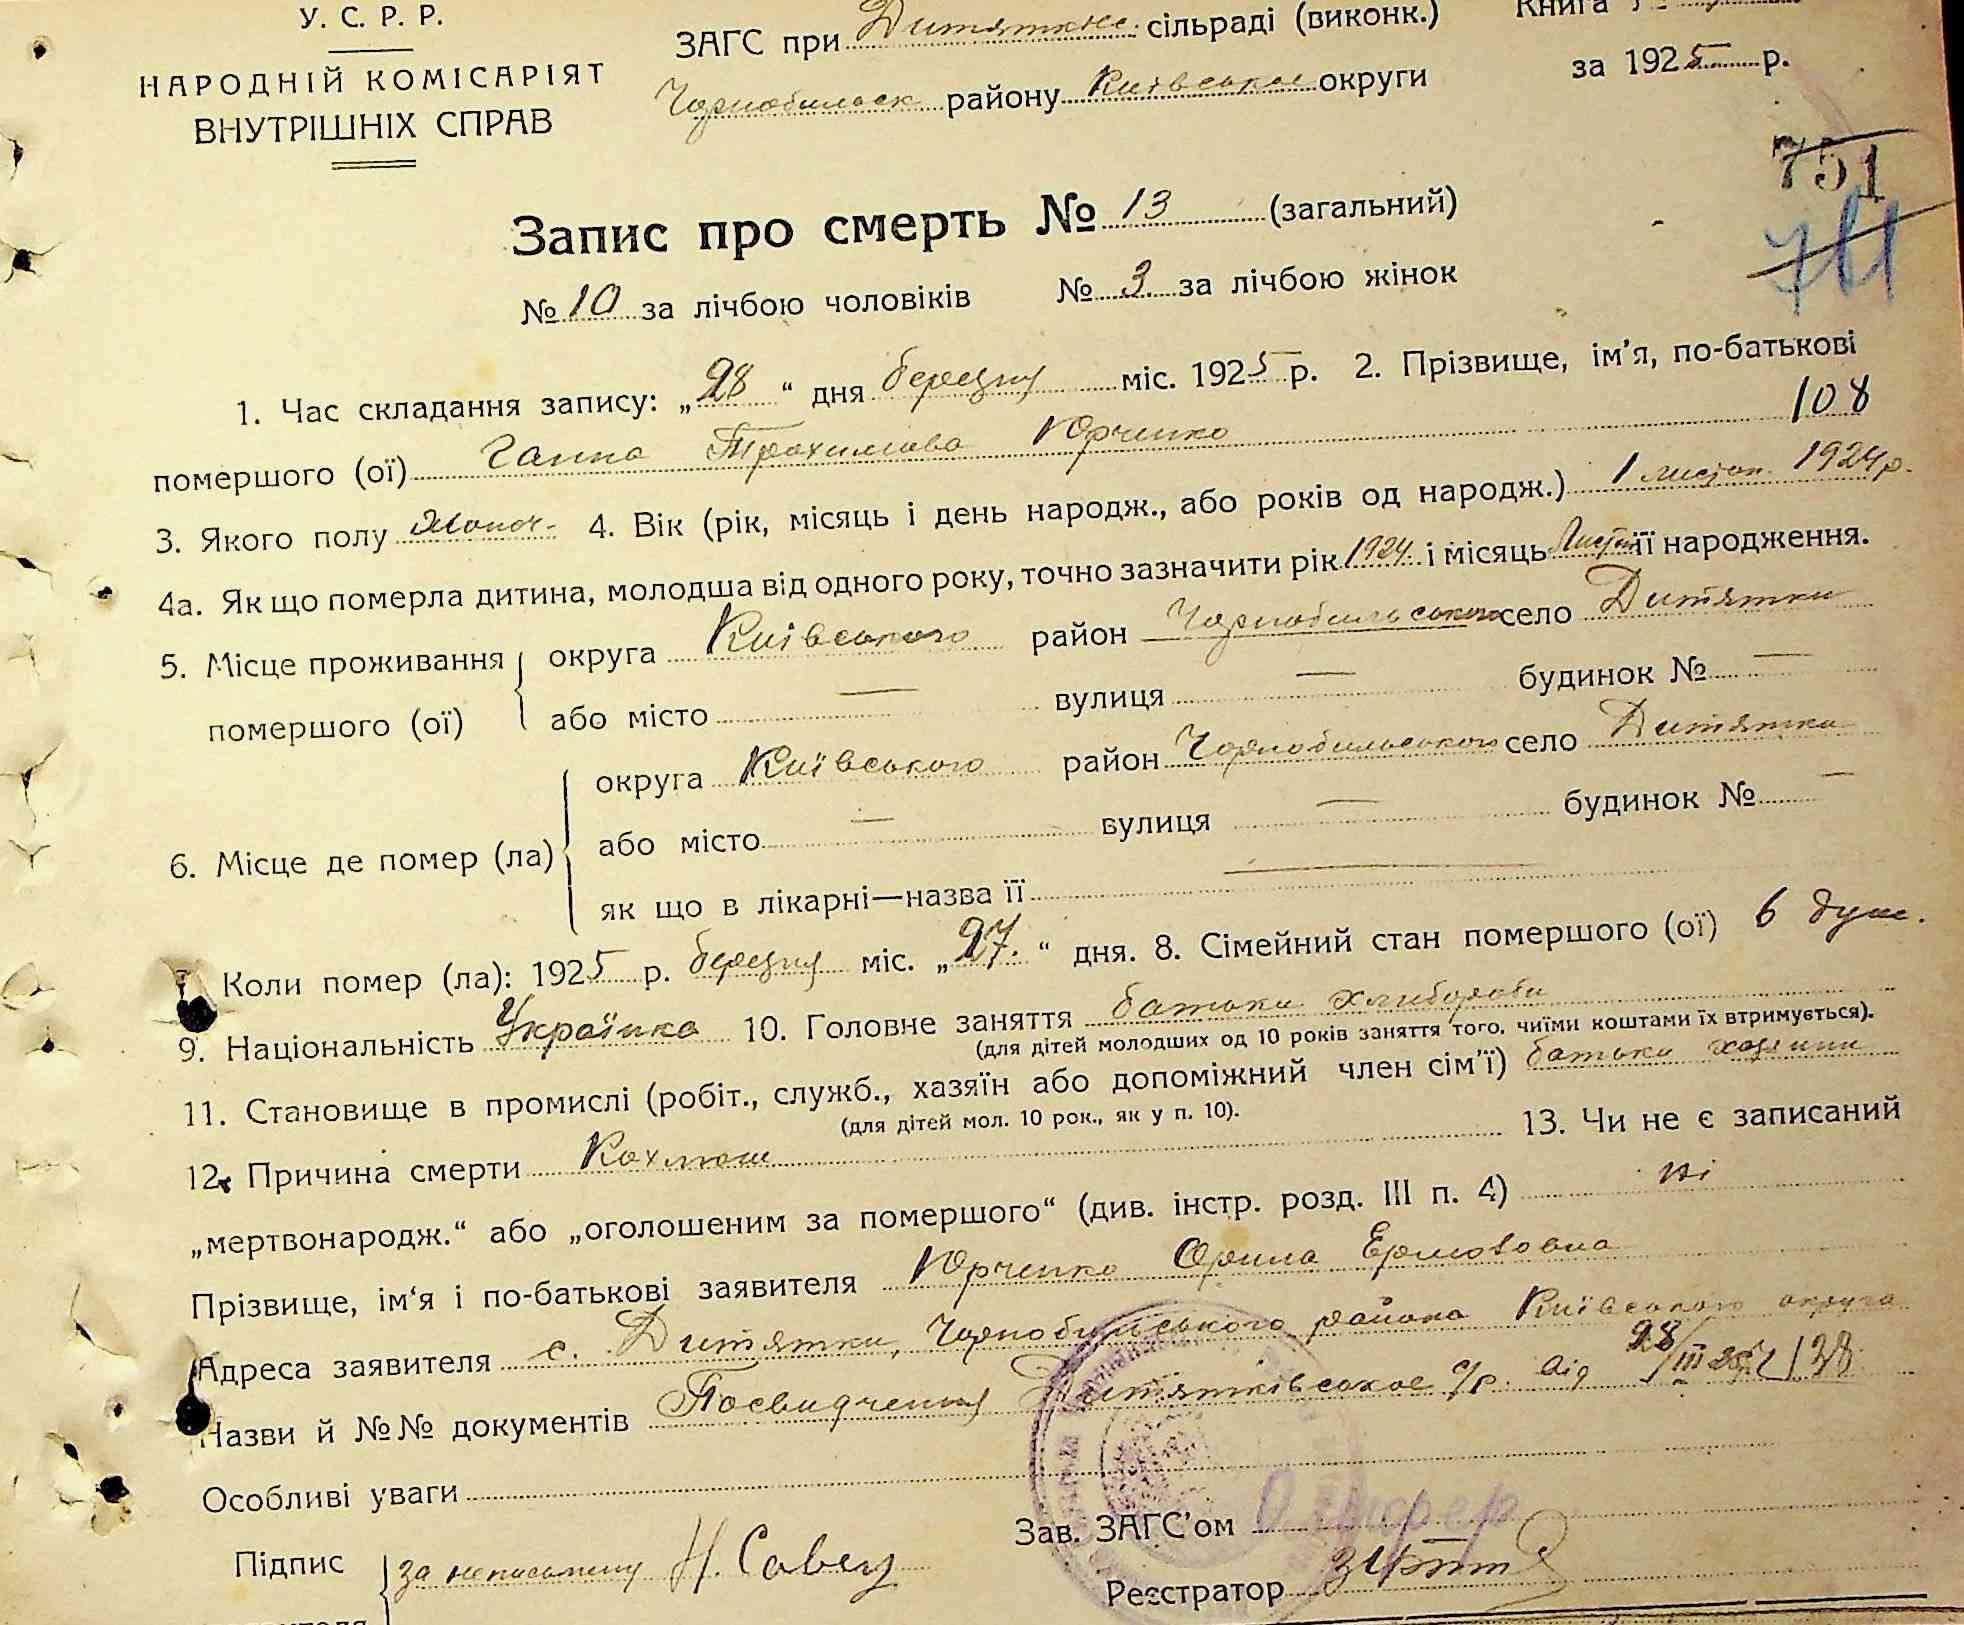 У. С. Р. Р.
НАРОДНІЙ КОМІСАРІЯТ
ВНУТРІШНІХ СПРАВ
ЗАГС при Дитяткис. сільраді (виконк.) Книга №
Чорнобильск районy Київськое округи за 1925 р.
751
Запис про смерть № 13 (загальний)
№ 10 за лічбою чоловіків № 3 за лічбою жінок
1. Час складання запису: „28“ дня березня міс. 1925 р. 2. Прізвище, ім’я, по-батькові
помершого (ої) Ганна Трохимова Юрченко 108
3. Якого полу Жоноч. 4. Вік (рік, місяць і день народж., або років од народж.) 1 листоп. 1924 р.
4а. Як що померла дитина, молодша від одного року, точно зазначити рік 1924 і місяць Листоп її народження.
5. Місце проживання округа Київського район Чорнобильського село Дитятки
помершого (ої) або місто — вулиця — будинок № —
округа Київського район Чорнобильського село Дитятки
6. Місце де помер (ла) або місто — вулиця — будинок № —
як що в лікарні—назва її —
7 Коли помер (ла): 1925 р. березня міс. „27.“ дня. 8. Сімейний стан помершого (ої) 6 душ.
9. Національність Українка 10. Головне заняття батьки хлибороби
(для дітей молодших од 10 років заняття того, чиїми коштами їх втримується).
11. Становище в промислі (робіт., служб., хазяїн або допоміжний член сім’ї) батьки хозяини
(для дітей мол. 10 рок., як у п. 10).
12. Причина смерти Кохлюш 13. Чи не є записаний
„мертвонародж.“ або „оголошеним за помершого“ (див. інстр. розд. III п. 4) ні
Прізвище, ім‘я і по-батькові заявителя Юрченко Орина
Адреса заявителя с. Дитятки, Чорнобильського района Київського округа
Назви й №№ документів Посвидчення Дитятківськое с/р. від 28/III 25 138
Особливі уваги
Зав. ЗАГС’ом
Підпис за неписьмену Н. Савец
Реєстратор